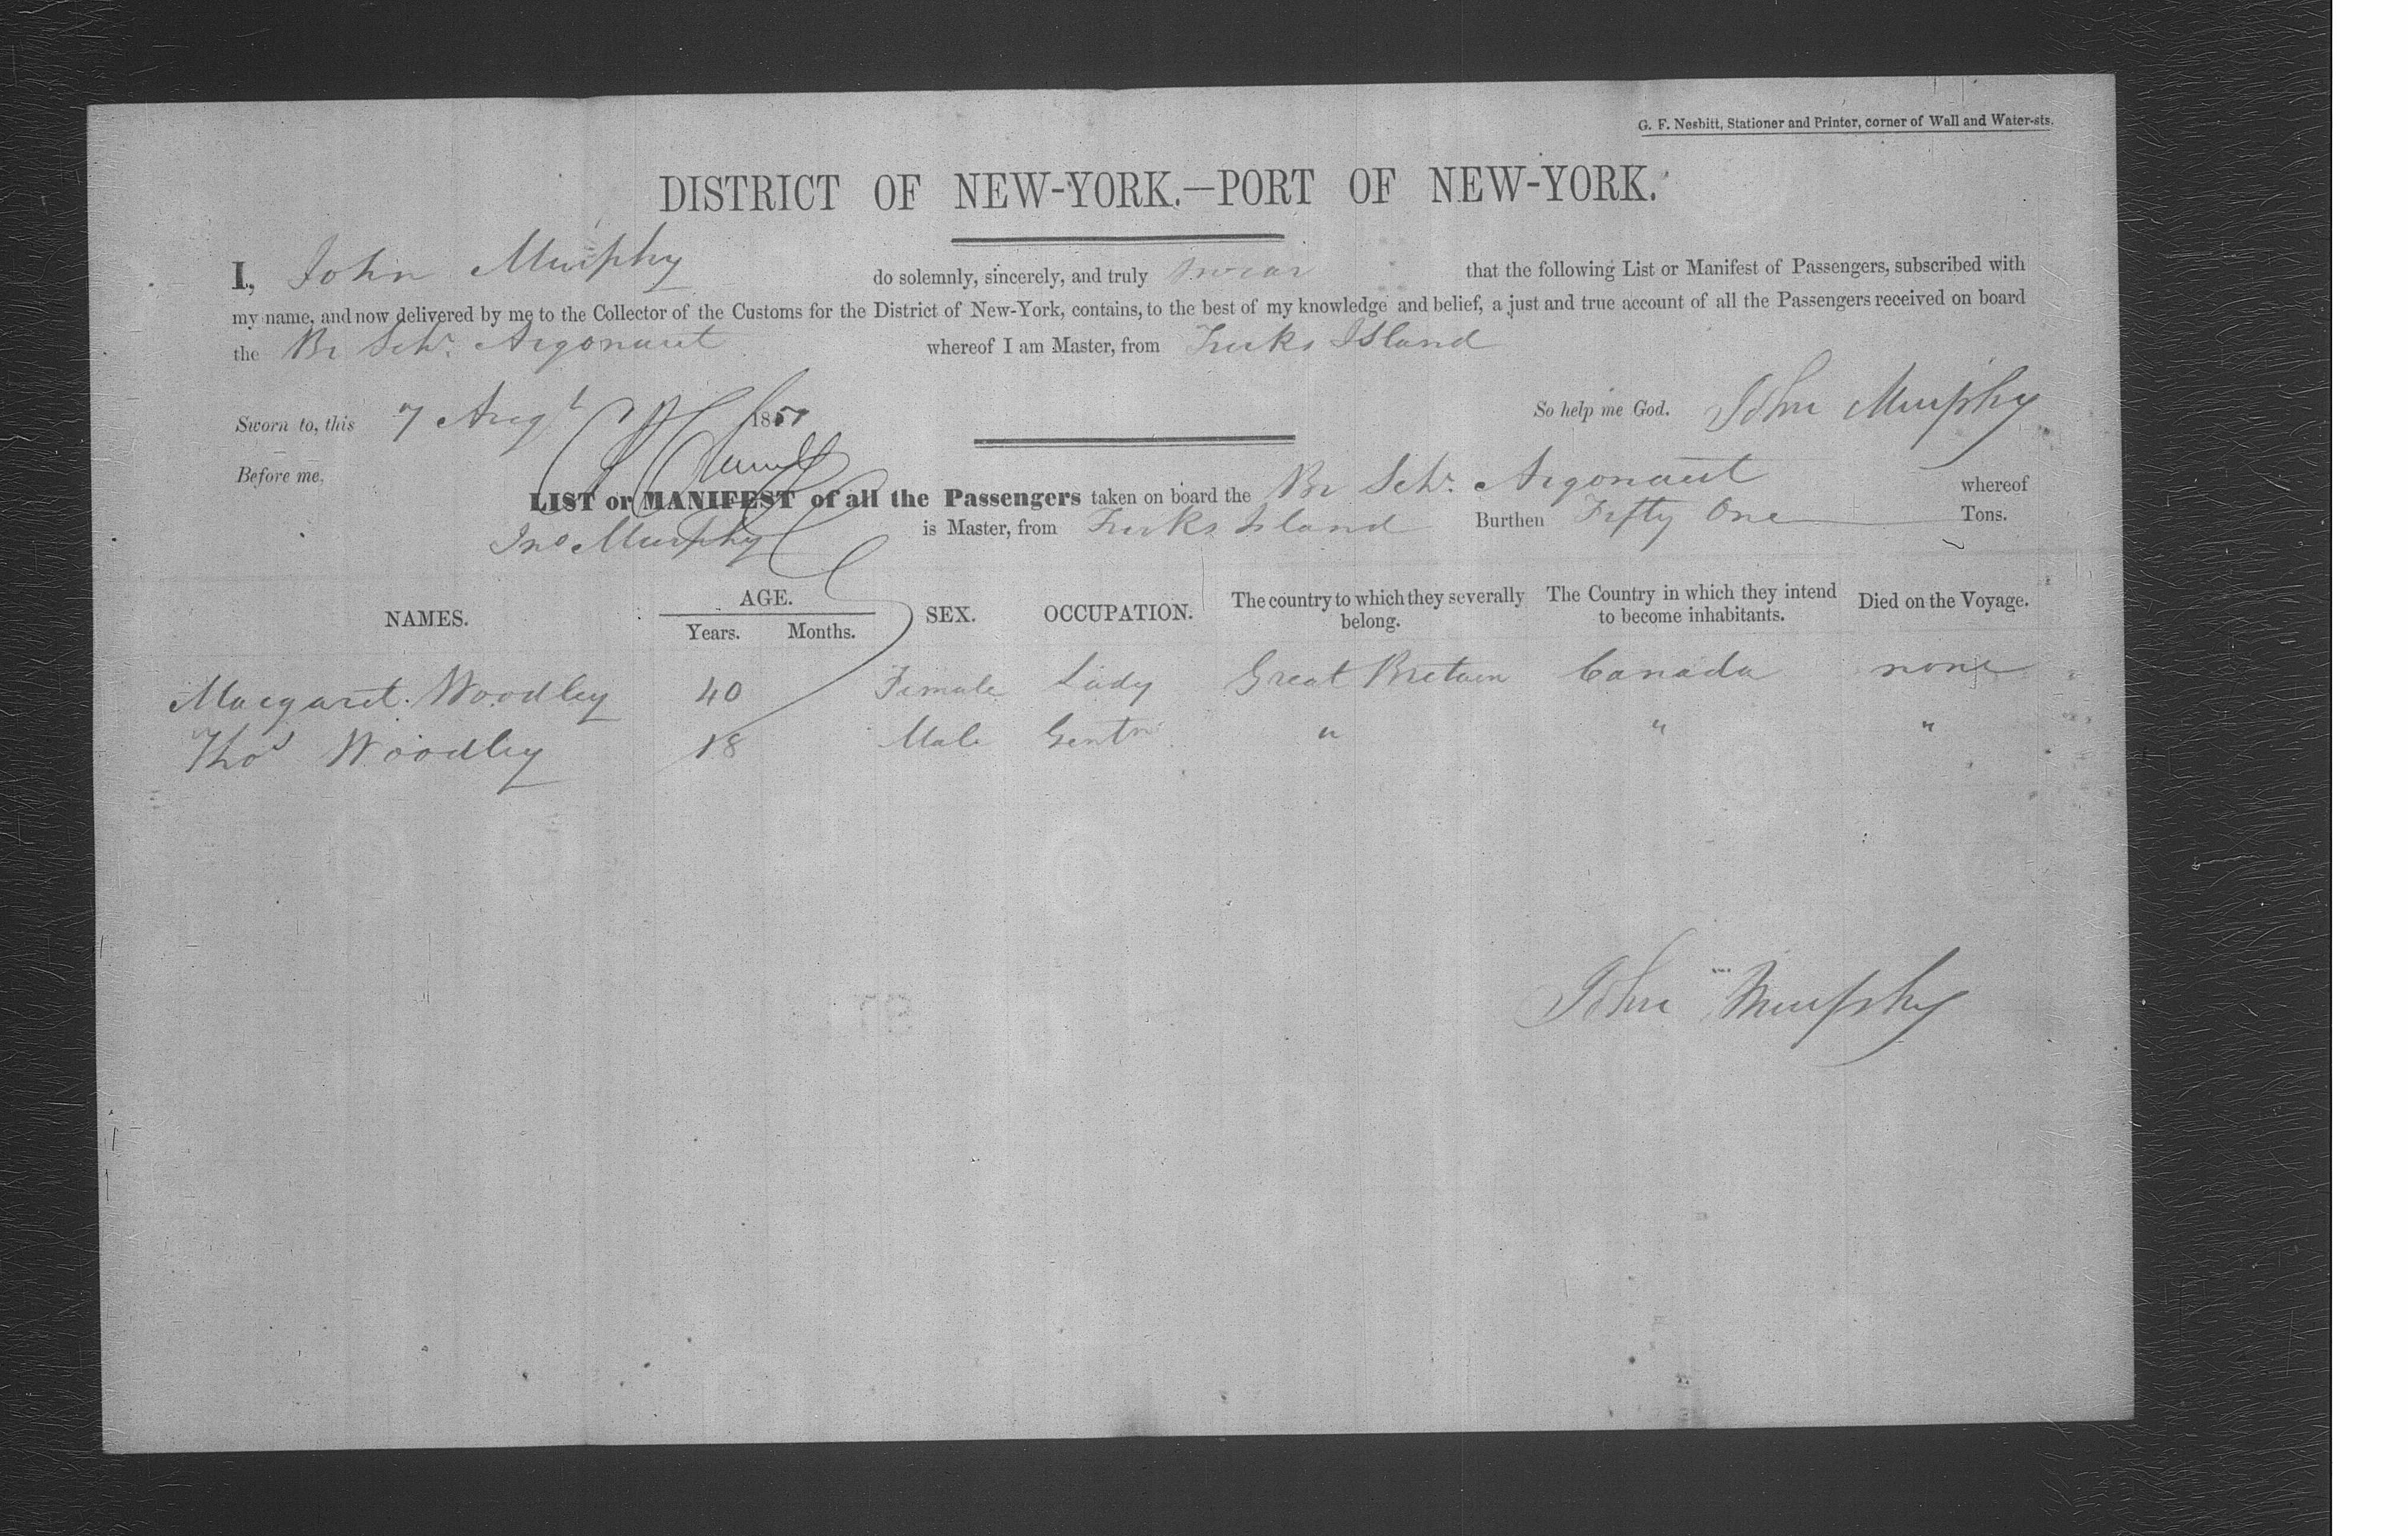 G. F. Nesbitt, Stationer and Printer, corner of Wall and Water-sts.
DISTRICT OF NEW-YORK.—PORT OF NEW-YORK.
I, John Murphy do solemnly, sincerely, and truly swear that the following List or Manifest of Passengers, subscribed with
my name, and now delivered by me to the Collector of the Customs for the District of New-York, contains, to the best of my knowledge and belief, a just and true account of all the Passengers received on board
the Br Schr. Argonaut whereof I am Master, from Turks Island
Sworn to, this 7 Augt 1851 So help me God. John Murphy
Before me,
LIST or MANIFEST of all the Passengers taken on board the Br Schr. Argonaut whereof
Jno Murphy is Master, from Turks Island Burthen Fifty One Tons.
NAMES. AGE. SEX. OCCUPATION. The country to which they severally belong. The Country in which they intend to become inhabitants. Died on the Voyage.
Years. Months.
Margaret Woodley 40 Female Lady Great Britain Canada none
Thos Woodley 18 Male Gentn " " "
John Murphy